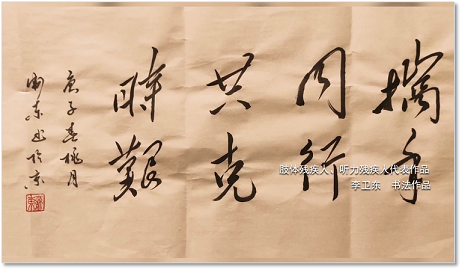 携手
同行
共克
時艱
庚子春桃月
衛东书於京
肢体残疾人、听力残疾人代表作品
李卫东　书法作品